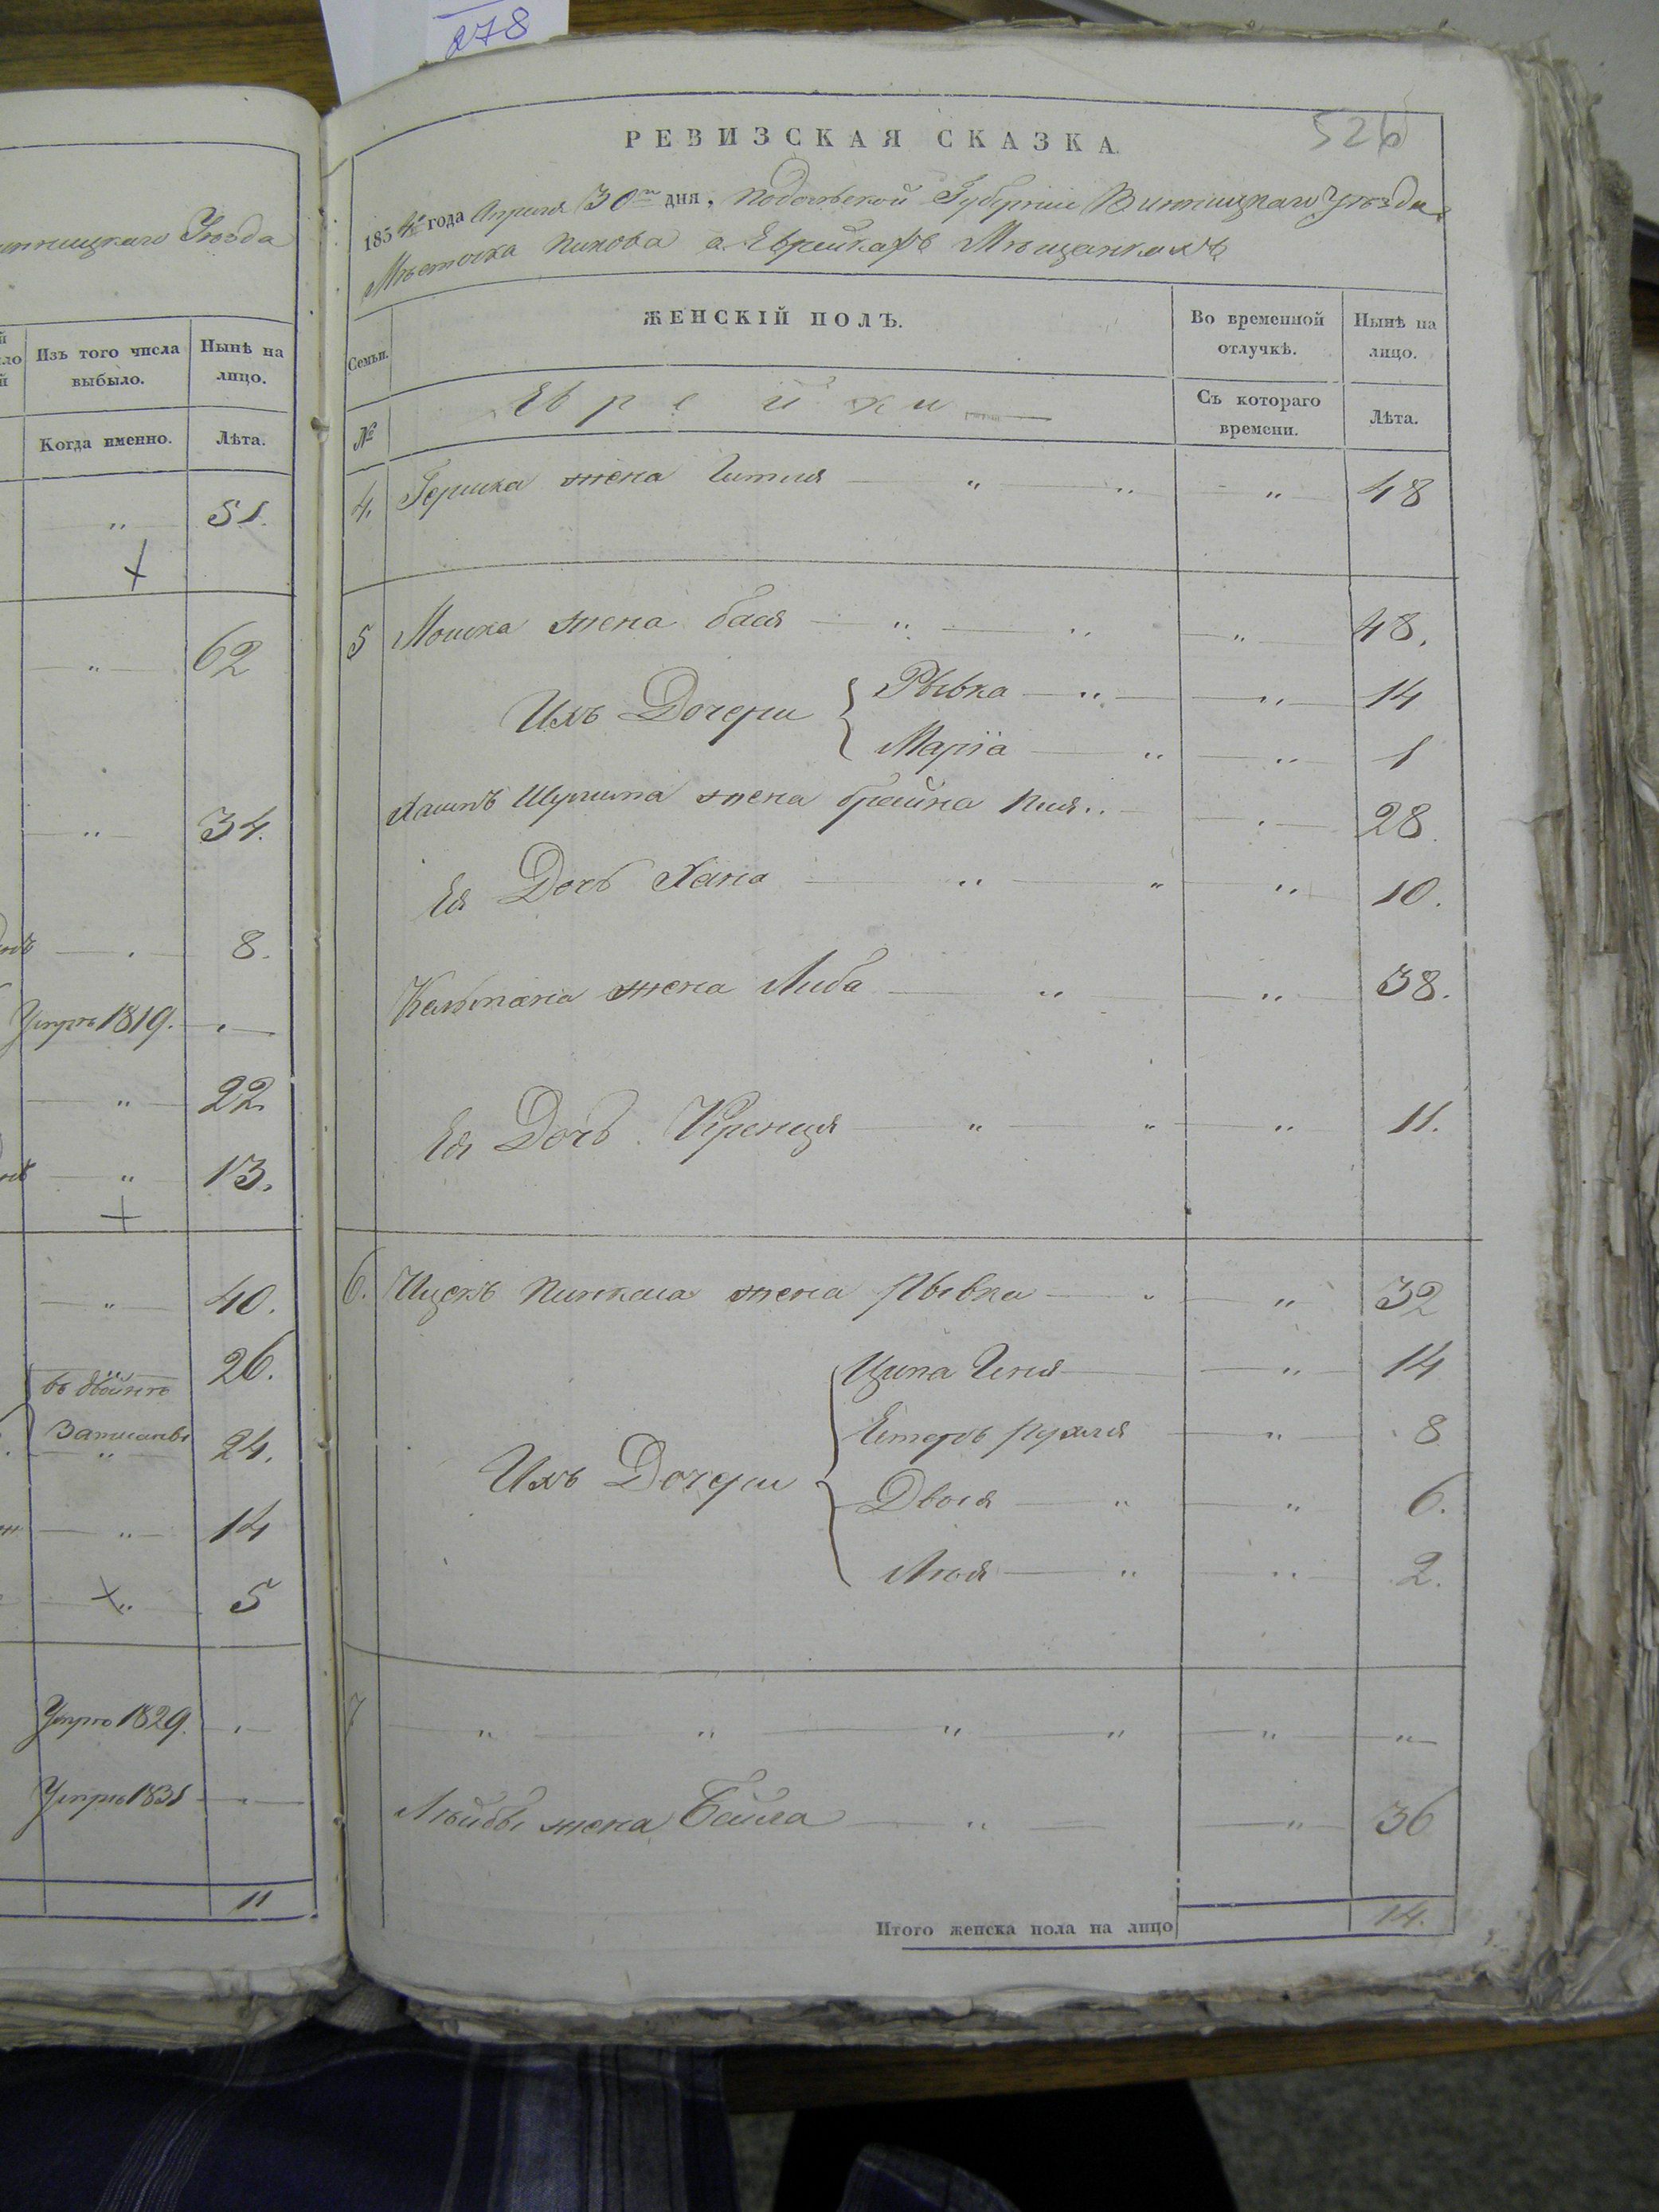 278
526
РЕВИЗСКАЯ СКАЗКА
1854 года Апреля 30го дня, Подольской Губернии Винницкаго Уѣзда
Мѣстечка Пикова о Еврейкахъ Мѣщанкахъ
Семьи.
ЖЕНСКІЙ ПОЛЪ.
Во временной отлучкѣ.
Нынѣ на лицо.
№
Еврейки
Съ котораго времени.
Лѣта.
4. Гершка жена Гитля " " " 48
5 Мошка жена бася " " " 48.
Ихъ Дочери
Рывка " " 14
Маріа " " 1
Хаимъ Шулима жена брайна 28
Ея Дочь Хана " " " 10.
жена Либа " " 38.
Ея Дочь Креиця " " " 11.
6. Ицекъ Пинкаса жена Рывка " " 32
Ихъ Дочери
Ципа Геня " 14
Естеръ рухля " 8
Двося " " 6.
Лея " " 2.
7 " " " " " "
Лейбы жена Бейла " " 36
Итого женска пола на лицо 14.
Уѣзда
Изъ того числа выбыло.
Нынѣ на лицо.
Когда именно.
Лѣта.
" 51.
" 62
" 34.
8.
Умеръ 1819.
" 22
" 13.
" 40.
26.
Записанъ
" 24.
" 14
" 5
Умеръ 1829.
Умеръ 1831
11